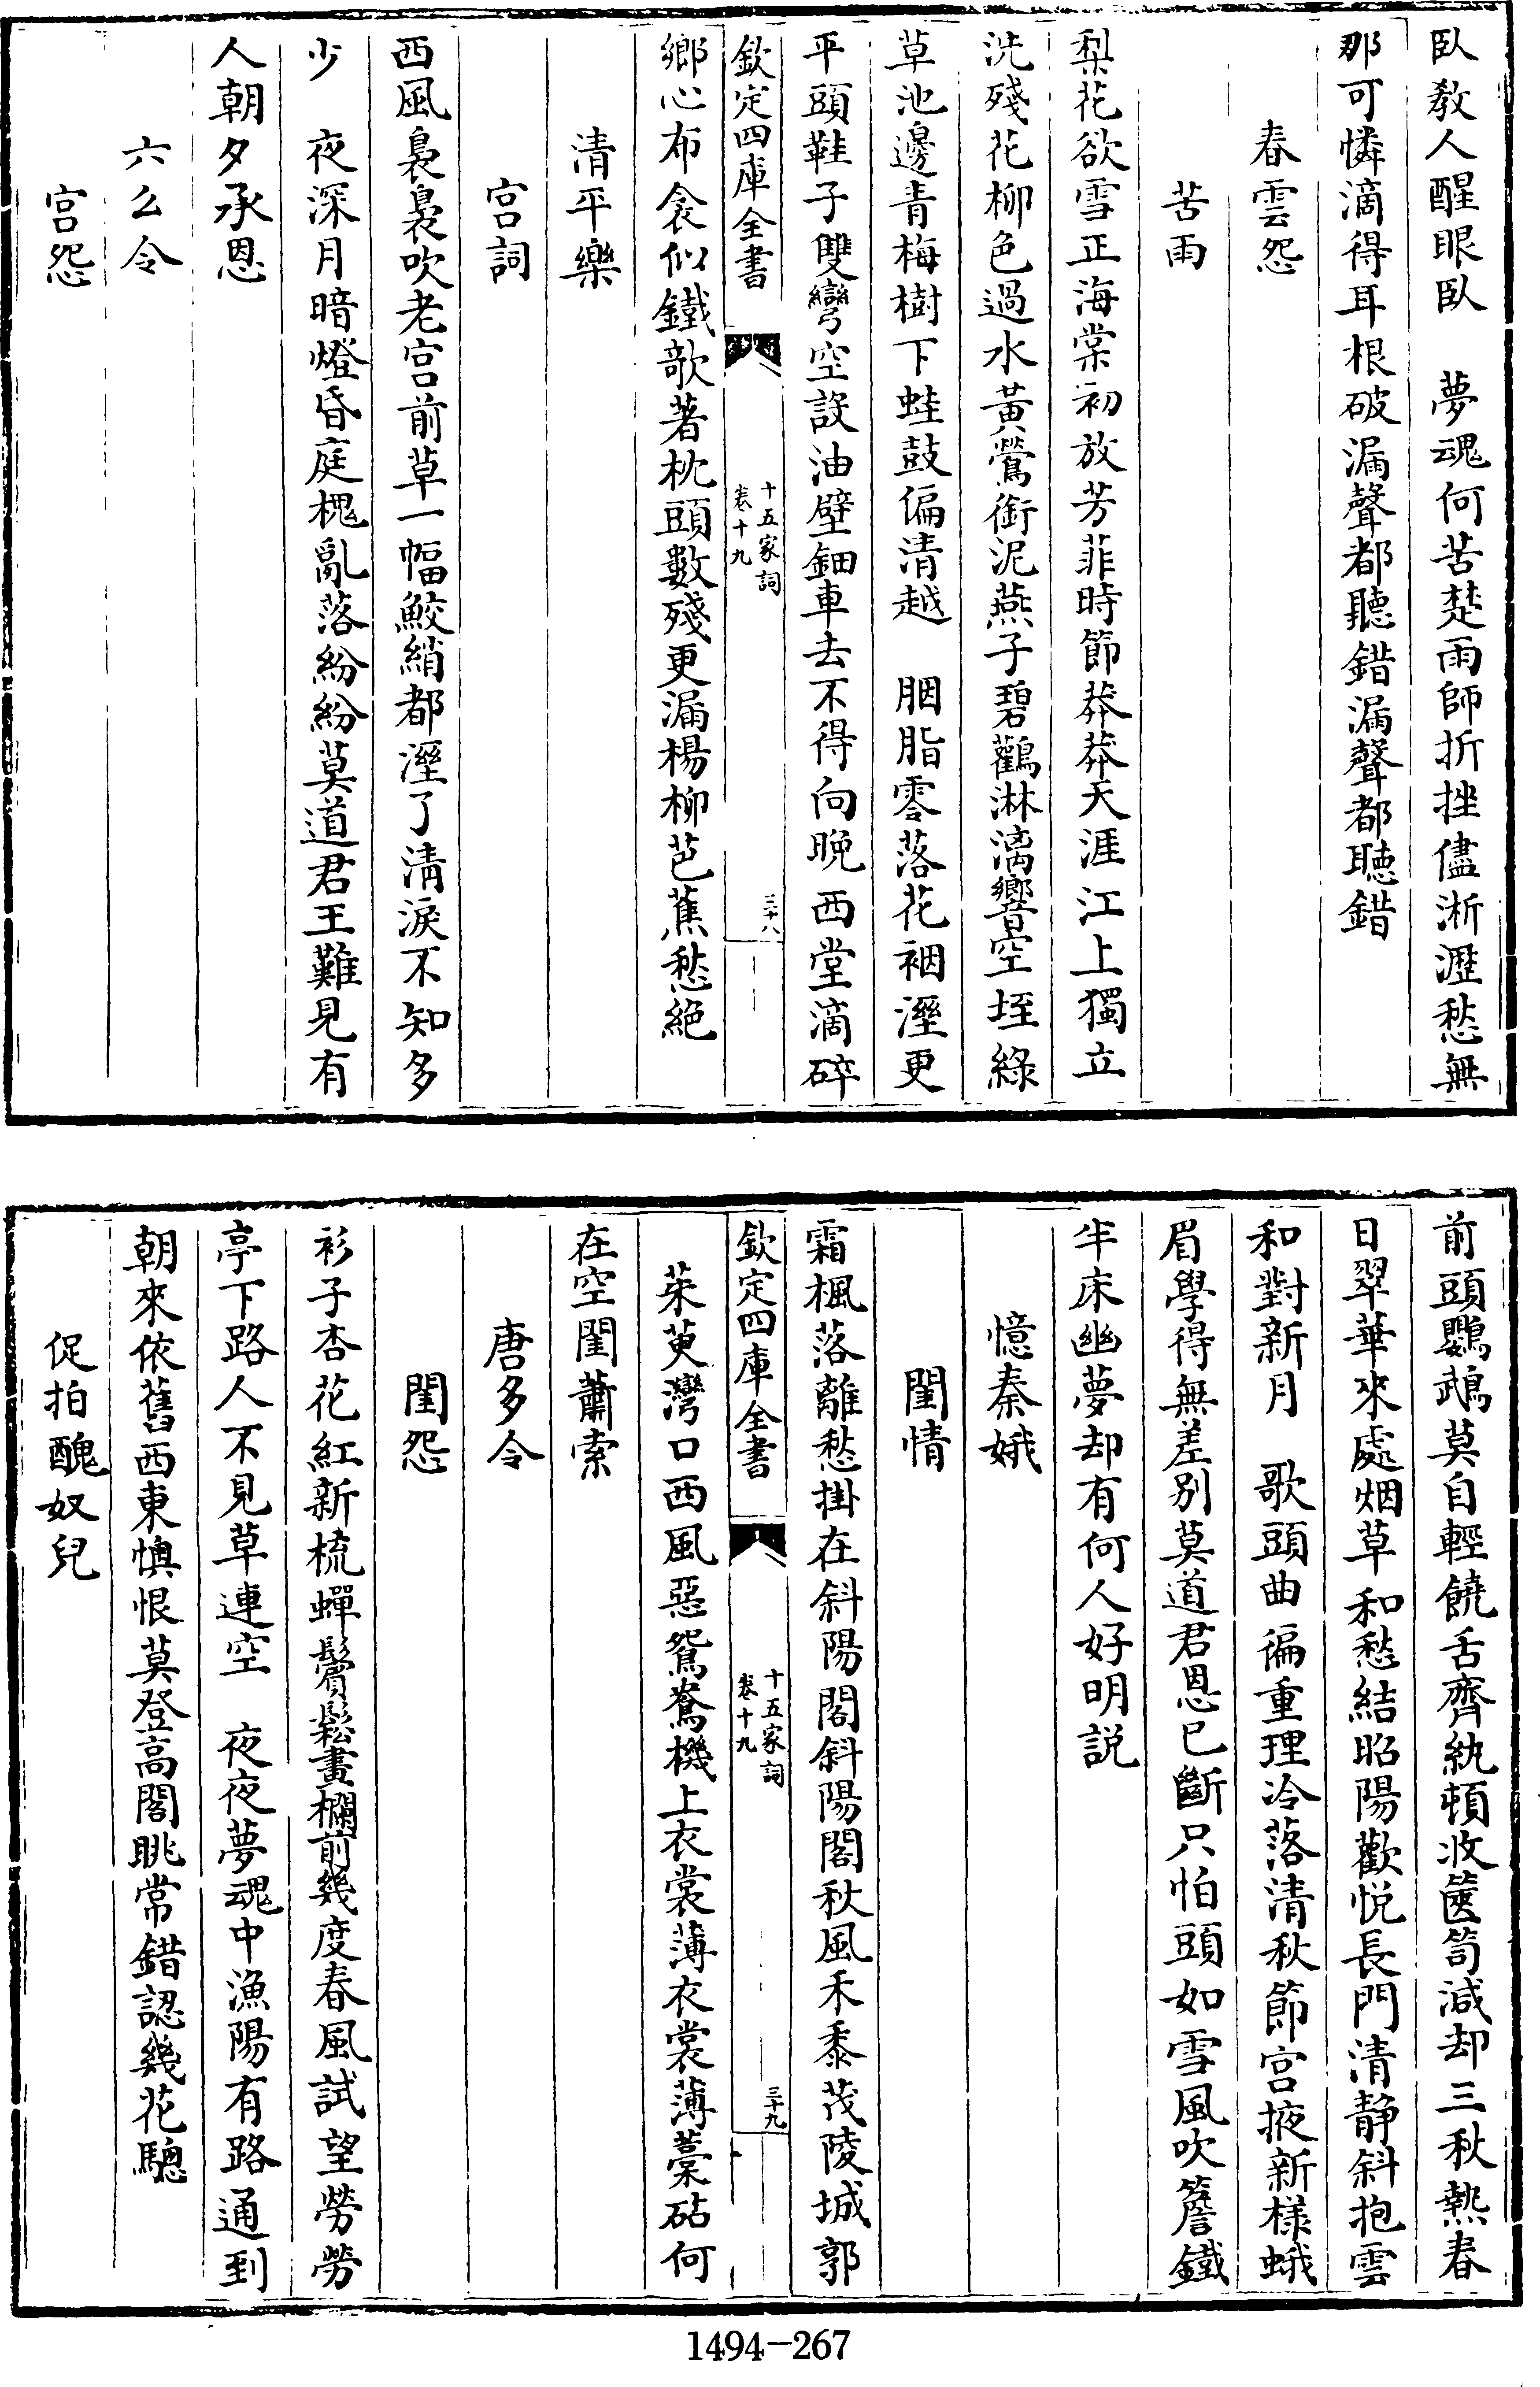 臥教人醒眼臥　夢魂何苦楚雨師折挫儘淅瀝愁無
那可憐滴得耳根破漏聲都聽錯漏聲都聽錯
春雲怨
苦雨
梨花欲雪正海棠初放芳菲時節莽莽天涯江上獨立
洗殘花柳色過水黃鶯銜泥燕子碧鸛淋漓響空垤綠
草池邊青梅樹下蛙鼓偏清越　胭脂零落花裀溼更
平頭鞋子雙彎空設油壁鈿車去不得向晚西堂滴碎
欽定四庫全書
十五家詞
卷十九
三十八
鄉心布衾似鐵欹著枕頭數殘更漏楊柳芭蕉愁絕
清平樂
宮詞
西風裊裊吹老宮前草一幅鮫綃都溼了清淚不知多
少　夜深月暗燈昏庭槐亂落紛紛莫道君王難見有
人朝夕承恩
六么令
宮怨
前頭鸚鵡莫自輕饒舌齊紈頓收篋笥減却三秋熱春
日翠華來處烟草和愁結昭陽歡悅長門清靜斜抱雲
和對新月　歌頭曲徧重理冷落清秋節宮掖新樣蛾
眉學得無差別莫道君恩已斷只怕頭如雪風吹簷鐵
半床幽夢却有何人好明説
憶秦娥
閨情
霜楓落離愁掛在斜陽閣斜陽閣秋風禾黍茂陵城郭
欽定四庫全書
十五家詞
卷十九
三十九
茱萸灣口西風惡鴛鴦機上衣裳薄衣裳薄藁砧何
在空閨蕭索
唐多令
閨怨
衫子杏花紅新梳蟬鬢鬆畫欄前幾度春風試望勞勞
亭下路人不見草連空　夜夜夢魂中漁陽有路通到
朝來依舊西東懊恨莫登高閣眺常錯認幾花驄
促拍醜奴兒
1494-267